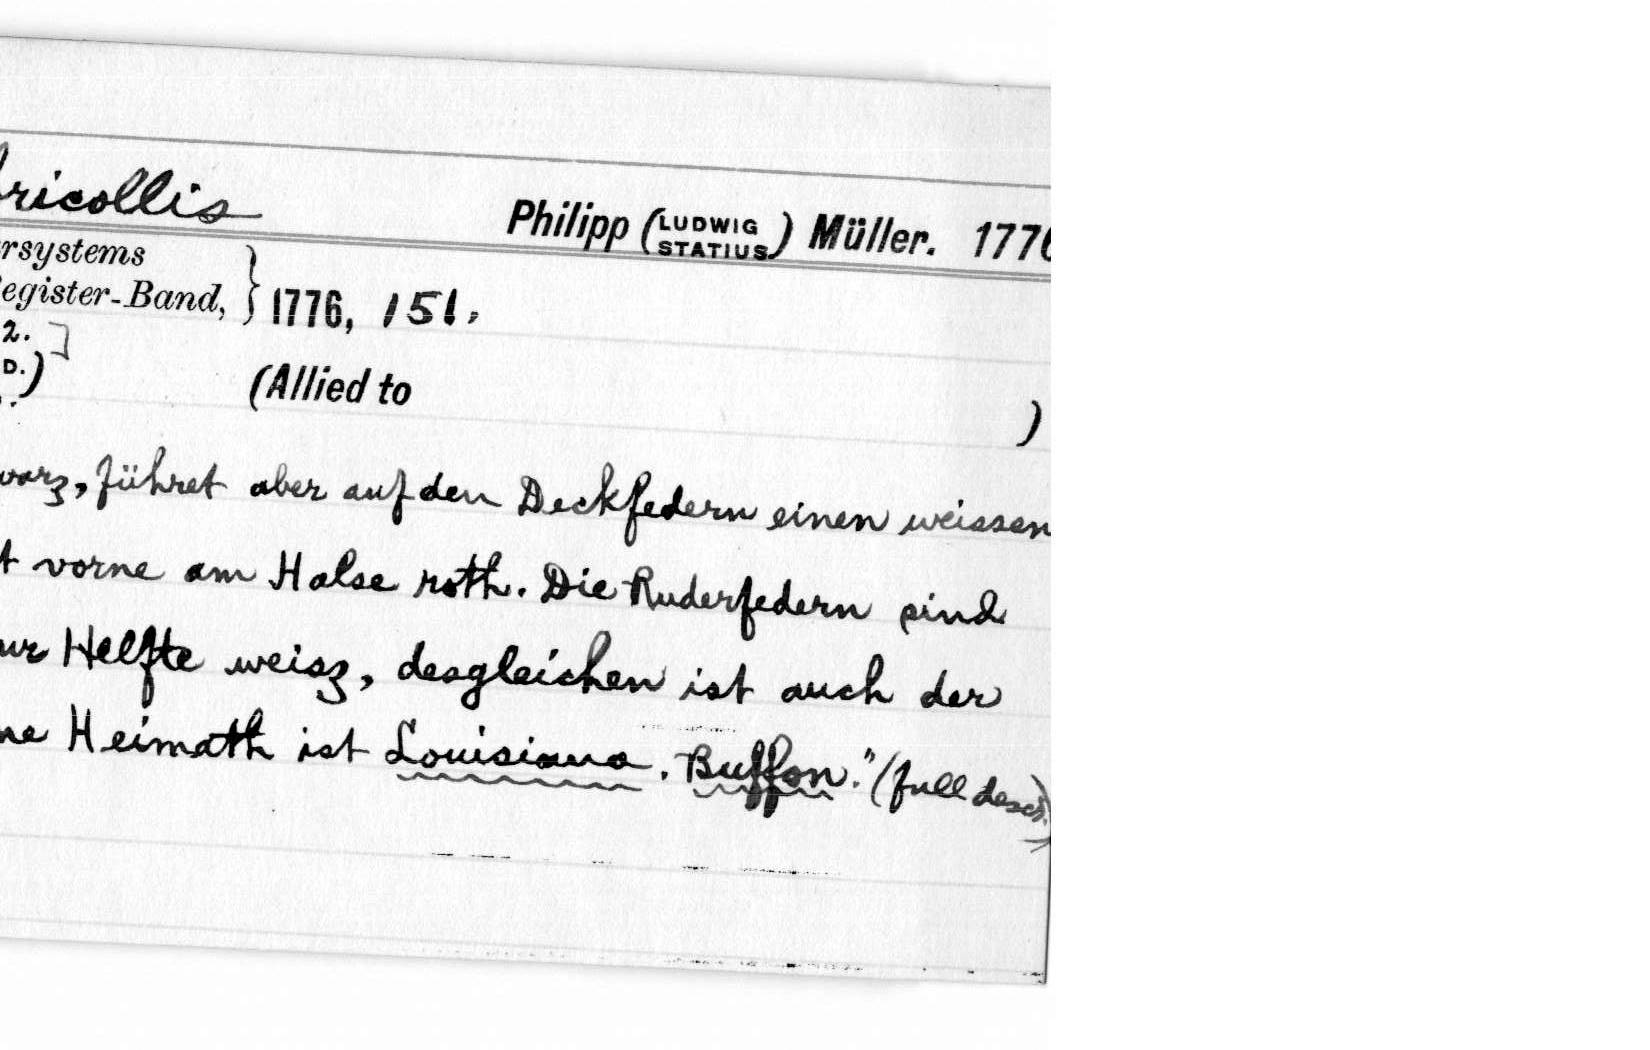 bricollis
Philipp (LUDWIG STATIUS) Müller. 1776
rsystems
egister-Band, } 1776, 151.
2. ]
D.)
(Allied to )
warz, führet aber auf den Deckfedern einen weissen
t vorne am Halse roth. Die Ruderfedern sind
ur Helfte weisz, desgleichen ist auch der
ne Heimath ist Louisiana. Buffon." (full descr.)